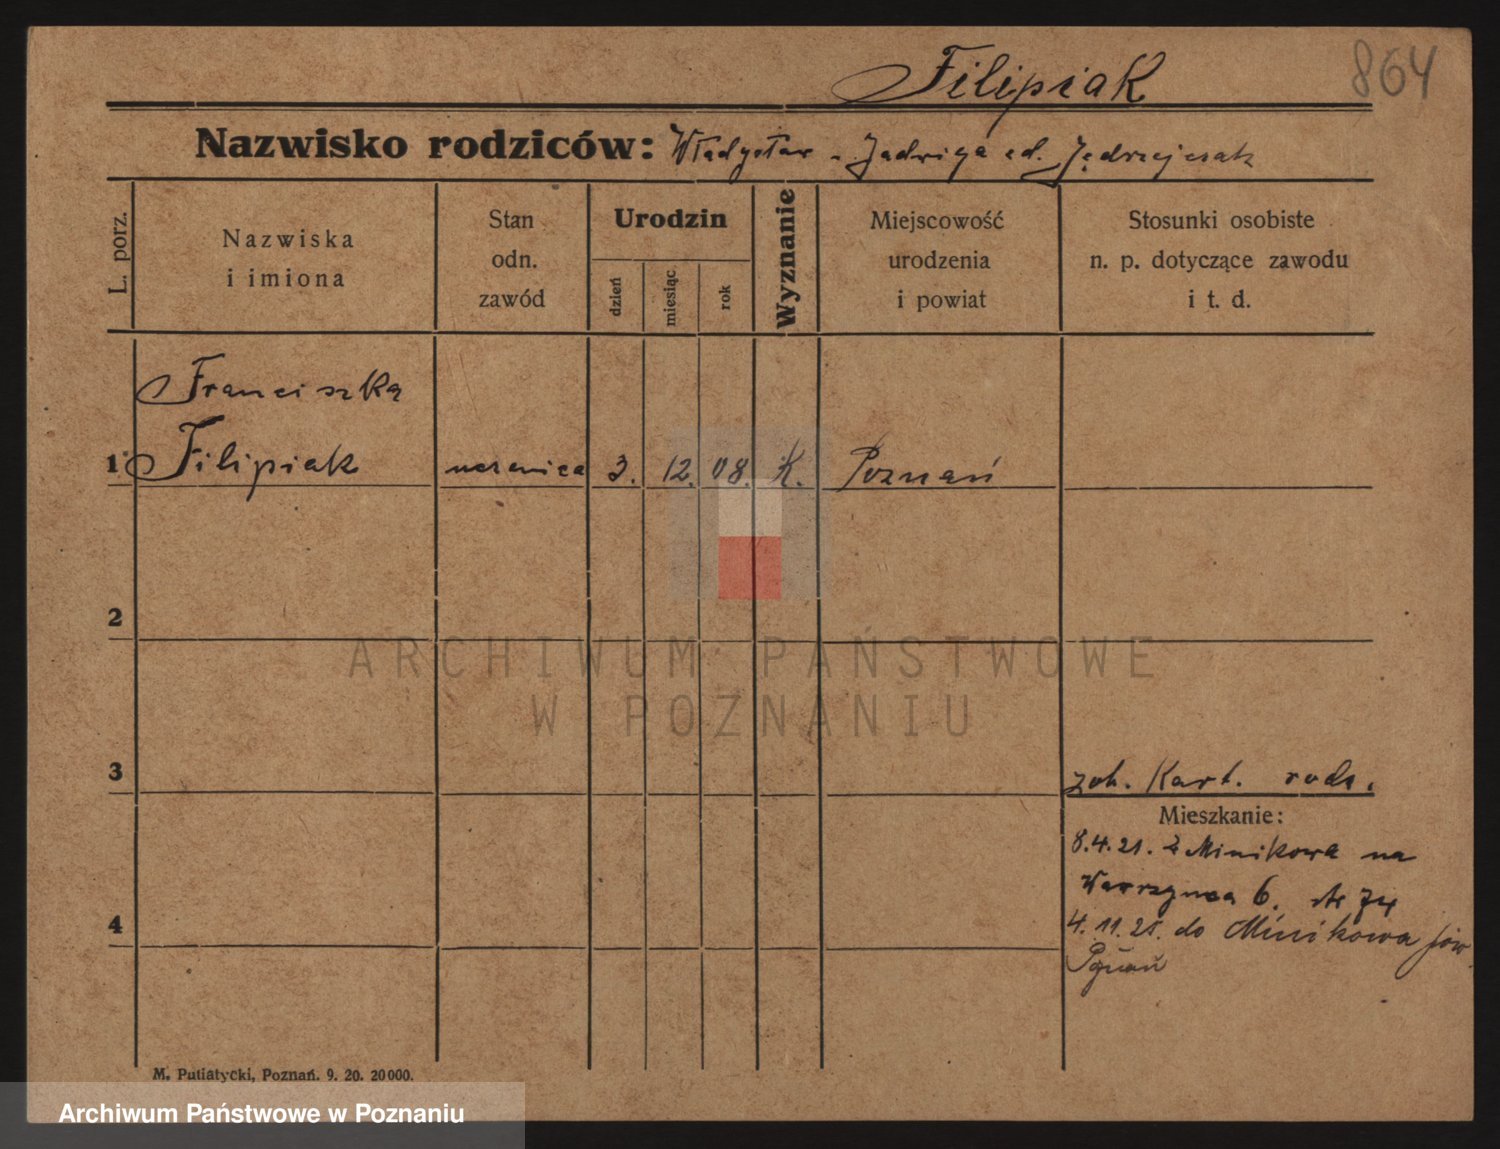 864
Filipiak
Nazwisko rodziców: Władysław - Jadwiga Jędrzejczak
L. porz.
Nazwiska
i imiona
Stan
odn.
zawód
Urodzin
dzień
miesiąc
rok
Wyznanie
Miejscowość
urodzenia
i powiat
Stosunki osobiste
n. p. dotyczące zawodu
i t. d.
Franciszka
1 Filipiak uczenica 3. 12. 08. K. Poznań
2
3
zob. Kart. rodz.
Mieszkanie:
8.4.21. z Minikowa na
Wawrzynca 6.
4
4.11.21. do Minikowa pow
Poznań
M. Putiatycki, Poznań. 9. 20. 20000.
ARCHIWUM PAŃSTWOWE
W POZNANIU
Archiwum Państwowe w Poznaniu